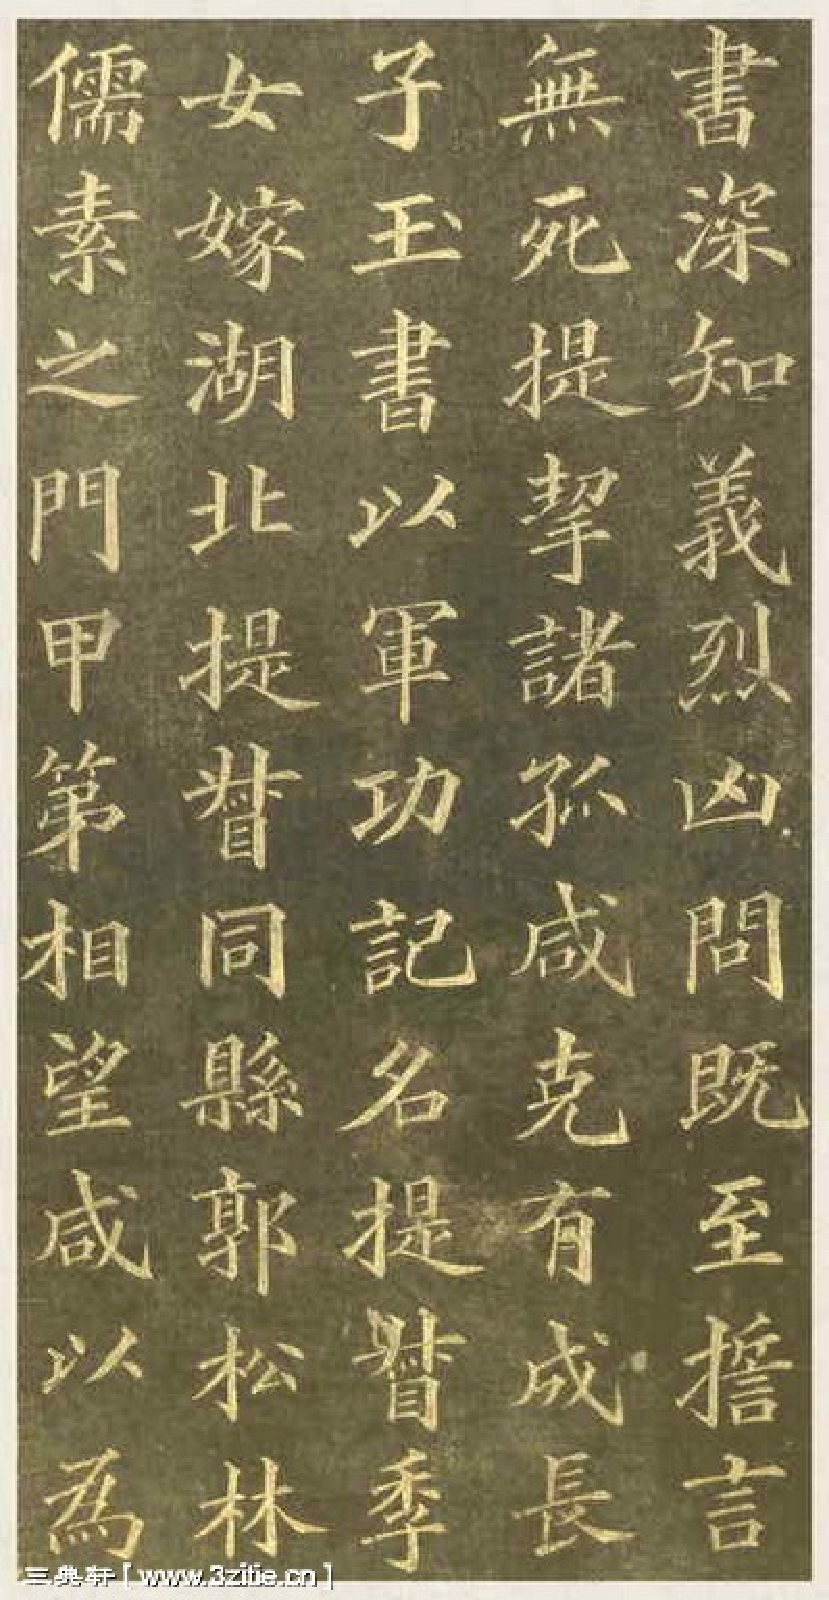 書深知義烈凶問既至擔言
無死提挈諸孤咸克有成長
子玉書以軍功記名提督季
女嫁湖北提督同縣郭松林
儒素之門甲第相望咸以為
三典轩[www.3zitie.cn]